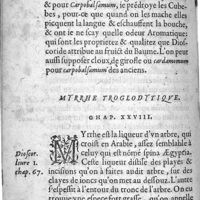 & pour Carpobalsamum, ie predroye les Cube-
bes, pour-ce que quand on les mache elles
picquent la langue & eschauffent la bouche,
& ont ie ne scay quelle odeur Aromatique:
qui sont les proprietez & qualitez que Dios-
coride attribue au fruict du Baume. L'on peut
aussi supposer clouz de girofle ou cardamomum
pour carpobalsamum des anciens.
MYRRHE TROGLODYTIQVE.
CHAP. XXVIII.
Myrrhe est la liqueur d'vn arbre, qui
croist en Arabie, assez semblable à
celuy qui est nomé spina Ægyptia.
Ceste liqueur distile des playes &
incisions qu'on à faites audit arbre, sur des
clayes de ioncs qu'on met au dessouz. L'autre
s'espessit à l'entour du tronc de l'arbre. On en
trouue vne espece fort grasse,
Dioscor.
liure 1.
chap. 67.